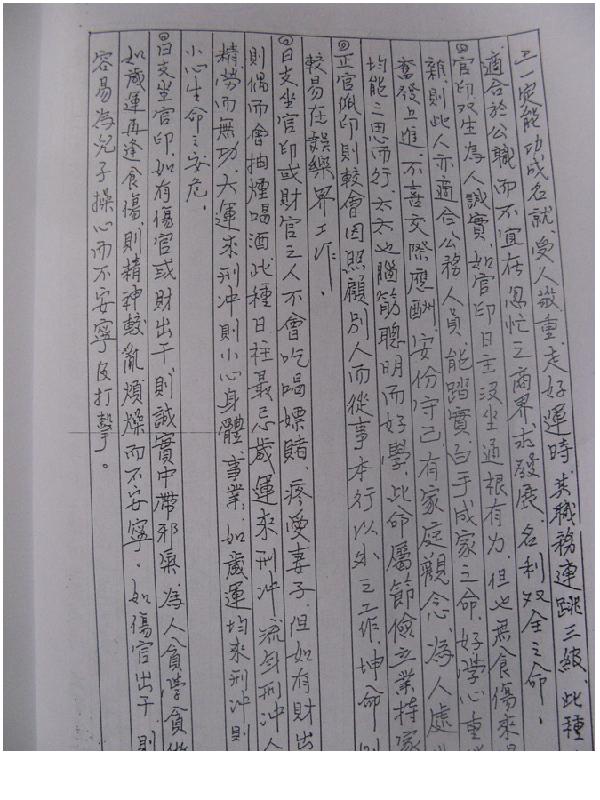 上一定能功成名就、受人敬重、走好運時、其職務連跳三級、此種
適合於公職而不宜在忽忙之商界求發展、名利双全之命。
官印双生為人誠實、如官印日主没坐通根有力、但也無食傷來
顯則此人亦適合公務人員、能踏實白手成家之命、好學心重
奮發上進、不喜交際應酬、安份守己有家庭觀念、為人處
均能三思而行、太太也腦筋聰明而好學、此命屬節儉立業持家
正官佩印則較會因照顧別人而從事本行以外之工作坤命則
較易在娛樂界工作。
日支坐官印或財官之人不會吃喝嫖賭、疼愛妻子、但如有財出
則偶而會抽煙喝酒此種日柱最忌歲運來刑冲、流年刑冲人
精勞而無功、大運來刑冲則小心身體、事業、如歲運均來刑冲則
小心生命之安危。
日支坐官印、如有傷官或財出干則誠實中帶邪氣、為人貪學貪
如歲運再逢食傷、則精神較亂煩燥而不安寧、如傷官出干則
容易為兒子操心而不安寧及打擊。